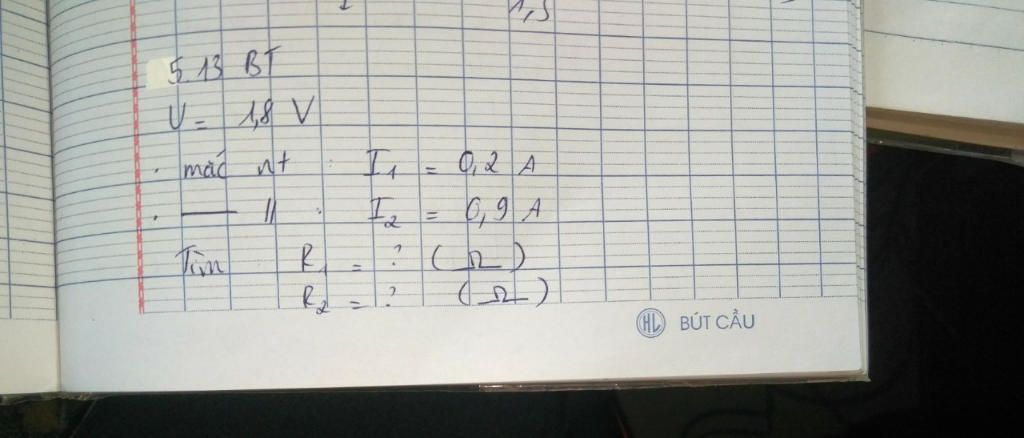 1,5
5.13 BT
U = 1,8 V
. mắc nt : I1 = 0,2 A
. —— // : I2 = 0,9 A
Tìm R1 = ? (Ω)
R2 = ? (Ω)
HL BÚT CẦU